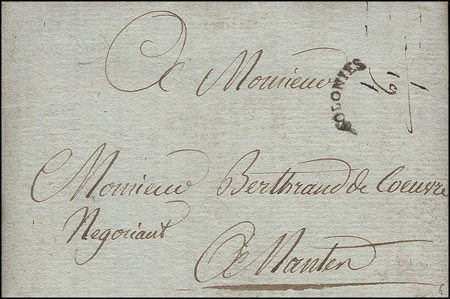 A Monsieur
COLONIES
19
Monsieur Berthrand de Coeuvre
Negociant
A Nantes